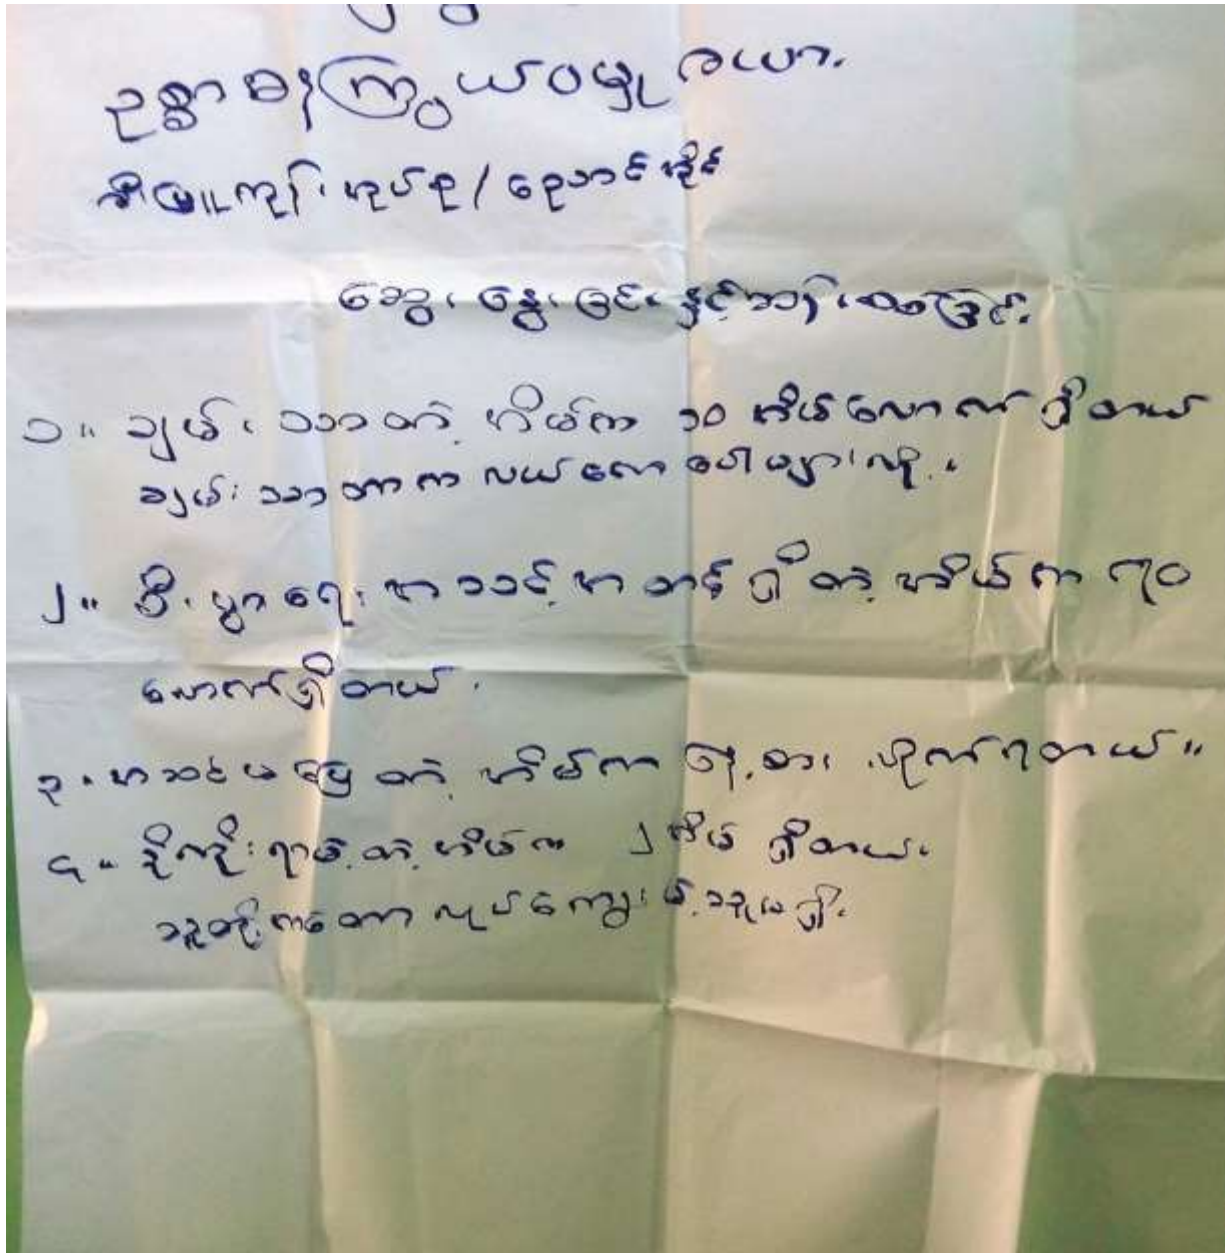 ဥစ္စာဓနကြွယ်ဝမှုဇယား
ဆီဖြူကုန်းအုပ်စု / ညောင်ခိုင်
ဆွေးနွေးခြင်းနှင့်သုံးသပ်ခြင်း
၁။ ချမ်းသာတဲ့အိမ်က ၁၀ အိမ်လောက်ရှိတယ်
ချမ်းသာတာက လယ်ယာပေါများလို့။
၂။ စီးပွားရေး အသင့်အတင့်ရှိတဲ့အိမ်က ၇၀
လောက်ရှိတယ်.
၃။ အဆင်မပြေတဲ့အိမ်က ရုန်းစား လိုက်ရတယ်။
၄။ ခိုကိုးရာမဲ့တဲ့အိမ်က ၂ အိမ်ရှိတယ်။
သူတို့ကတော့ လုပ်ကျွေးမဲ့သူမရှိ.